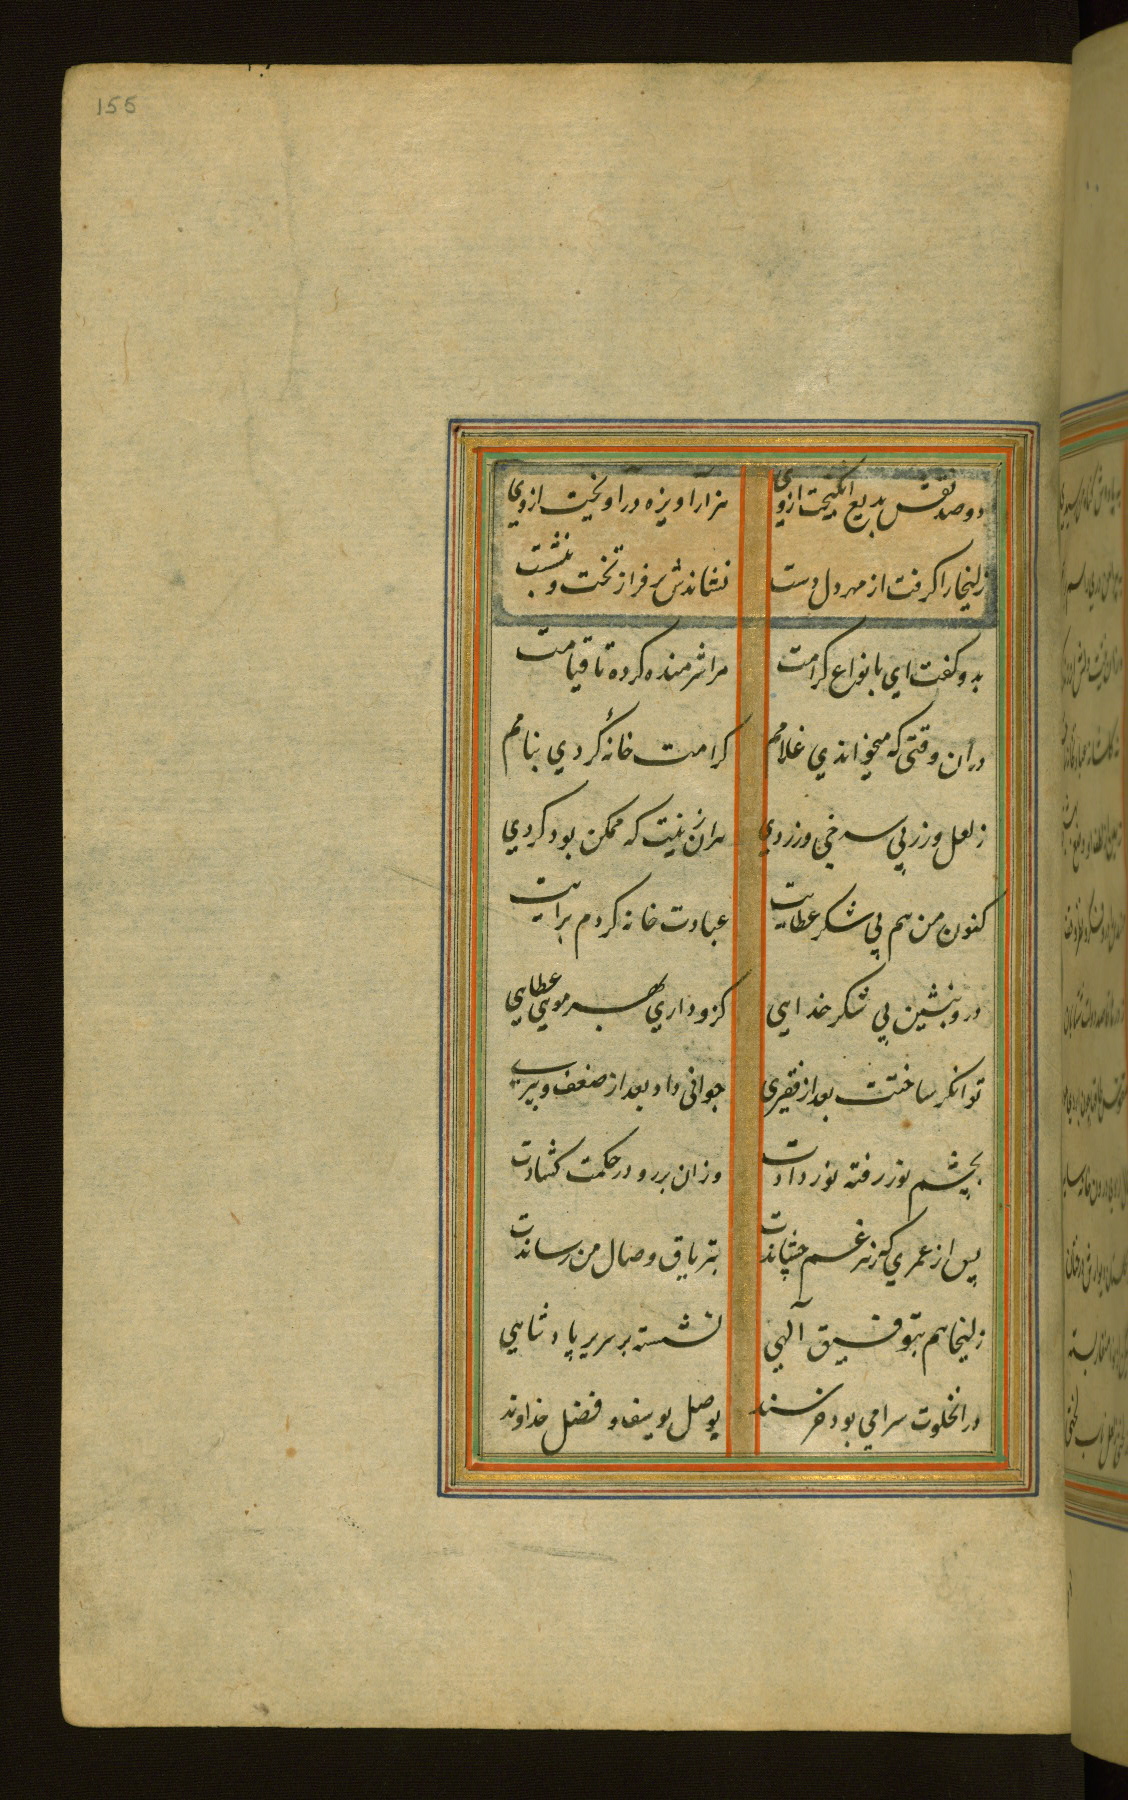 155
دوصد نقش بدیع انکیخت ازوی هزار اویزه دراویخت ازوی
زلیخا را کرفت از مهر دل دست نشاندش بر فراز تخت و بنشست
بدو کفت ای بانواع کرامت مرا شرمنده کرده تا قیامت
دران وقتی که میخواندی غلامم کرامت خانهٔ کردی بنامم
زلعل و زر پی سرخی و زردی دران زینت که ممکن بود کردی
کنون من هم پی شکر عطایت عبادت خانه کردم برایت
درو بنشین پی شکر خدایی کزو داری بهر مویی عطایی
توانکر ساختت بعد از فقیری جوانی داد بعد از ضعف و پیری
بچشم نور رفته نور دادت وزان بر رو در حکمت کشادت
پس از عمری که زهر غم چشاندت بتریاق وصال من رساندت
زلیخا هم بتوفیق آلهی نشسته بر سریر پادشاهی
درانخلوت سرا می بود خرسند بوصل یوسف و فضل خداوند